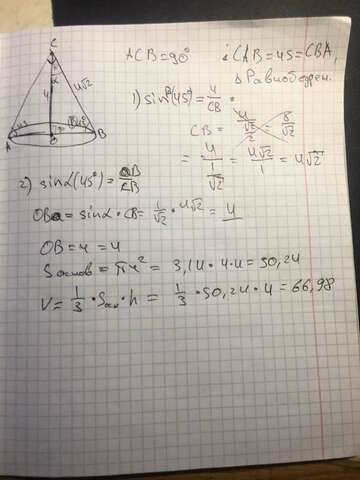 C
α
4
4√2
45
90°
45°
A
O
B
ACB = 90°
∠CAB = 45 = CBA,
Δ Равнобедрен.
1) sin(45°) = 4/CB
CB = 4/(√2/2) = 8/√2
= 4/(1/√2) = 4√2/1 = 4√2
2) sinα(45°) = OB/CB
OB = sinα · CB = 1/√2 · 4√2 = 4
OB = 4 = 4
Sоснов = πr² = 3,14 · 4 · 4 = 50,24
V = 1/3 · Sосн · h = 1/3 · 50,24 · 4 = 66,98